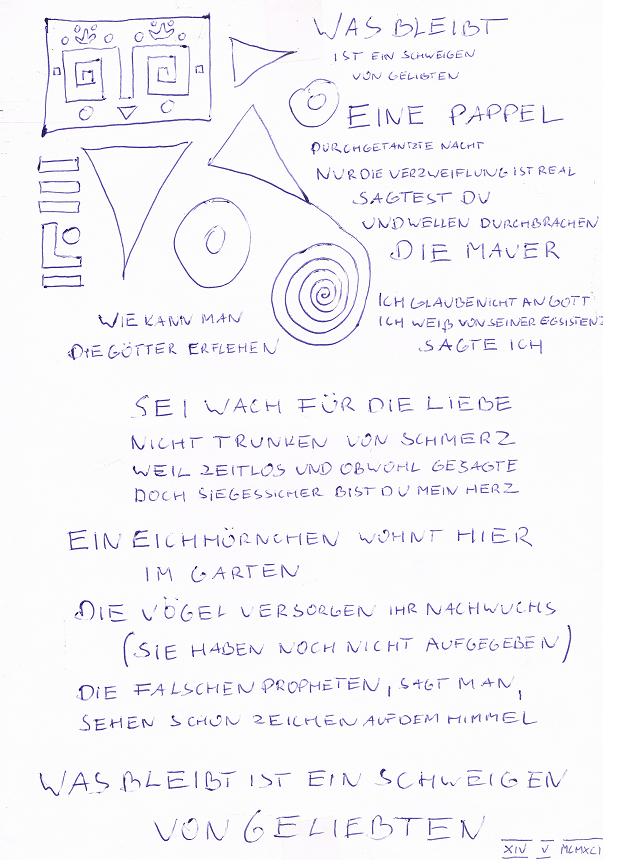 WAS BLEIBT
IST EIN SCHWEIGEN
VON GELIBTEN
EINE PAPPEL
DURCHGETANTZTE NACHT
NUR DIE VERZWEIFLUNG IST REAL
SAGTEST DU
UND WELLEN DURCHBRACHEN
DIE MAUER
ICH GLAUBE NICHT AN GOTT
ICH WEIß VON SEINER EGSISTENZ
SAGTE ICH
WIE KANN MAN
DIE GÖTTER ERFLEHEN
SEI WACH FÜR DIE LIEBE
NICHT TRUNKEN VON SCHMERZ
WEIL ZEITLOS UND OBWOHL GESAGTE
DOCH SIEGESSICHER BIST DU MEIN HERZ
EIN EICHHÖRNCHEN WOHNT HIER
IM GARTEN
DIE VÖGEL VERSORGEN IHR NACHWUCHS
(SIE HABEN NOCH NICHT AUFGEGEBEN)
DIE FALSCHEN PROPHETEN, SAGT MAN,
SEHEN SCHON ZEICHEN AUF DEM HIMMEL
WAS BLEIBT IST EIN SCHWEIGEN
VON GELIEBTEN
XIV V MCMXCI